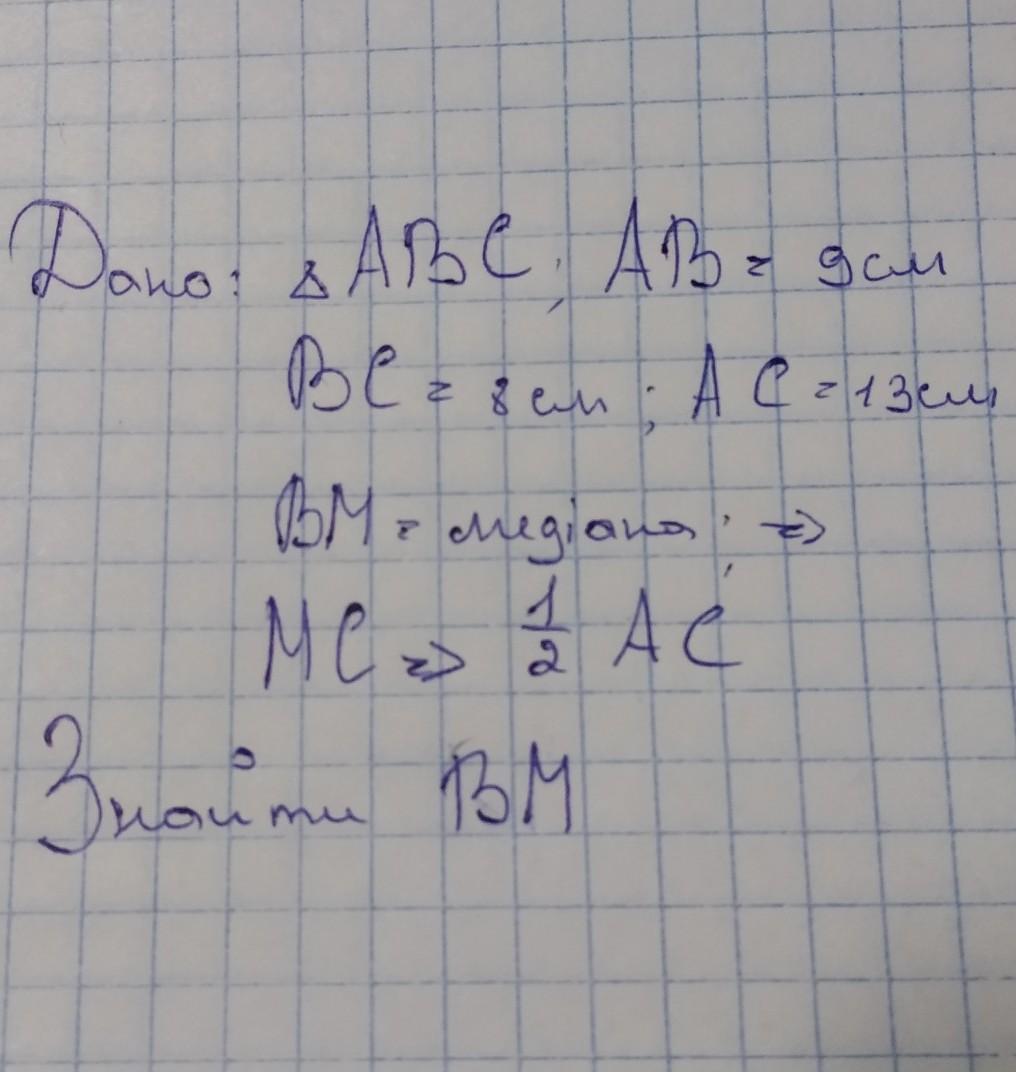 Дано: △ABC; AB = 9см
BC = 8см; AC = 13см
BM = медіана; =>
MC => 1/2 AC
Знайти BM